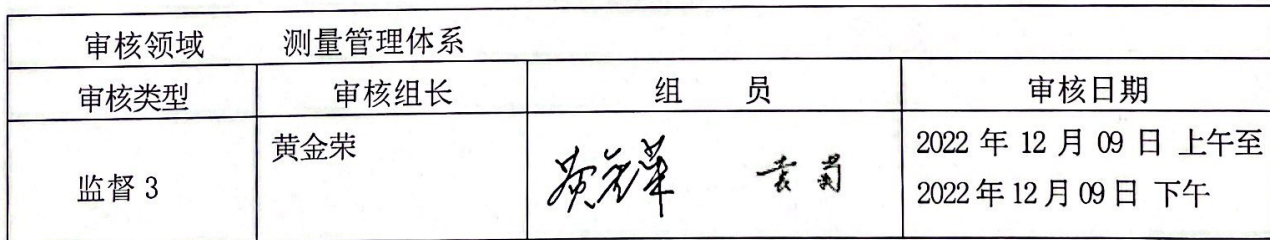 审核领域 测量管理体系
审核类型 审核组长 组 员 审核日期
监督 3 黄金荣 袁菊 2022 年 12 月 09 日 上午至
2022 年 12 月 09 日 下午